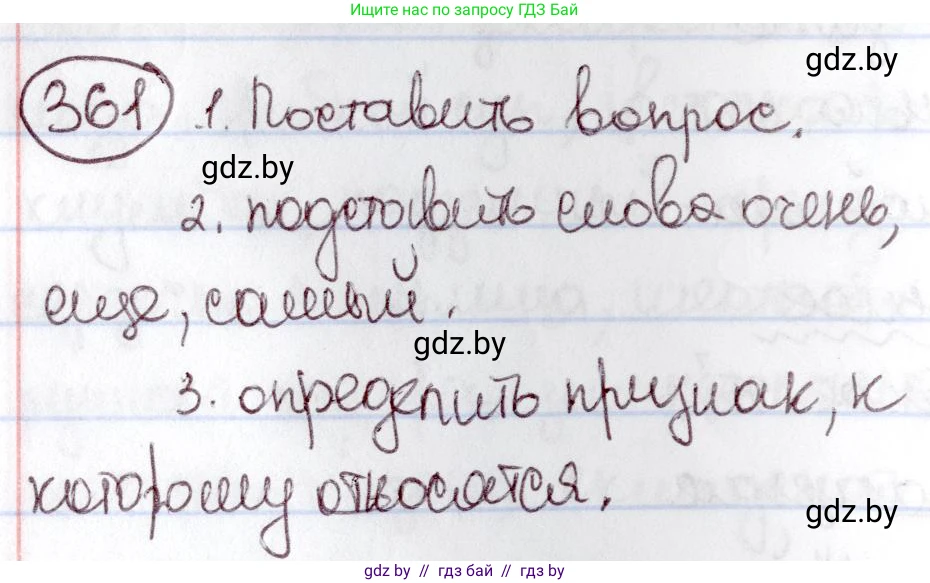 Ищите нас по запросу ГДЗ Бай
gdz.by
361 1. Поставить вопрос.
gdz.by
2. подставить слова очень,
еще, самый.
gdz.by
3. определить признак, к
которому относятся.
gdz.by
gdz by // гдз бай // gdz by